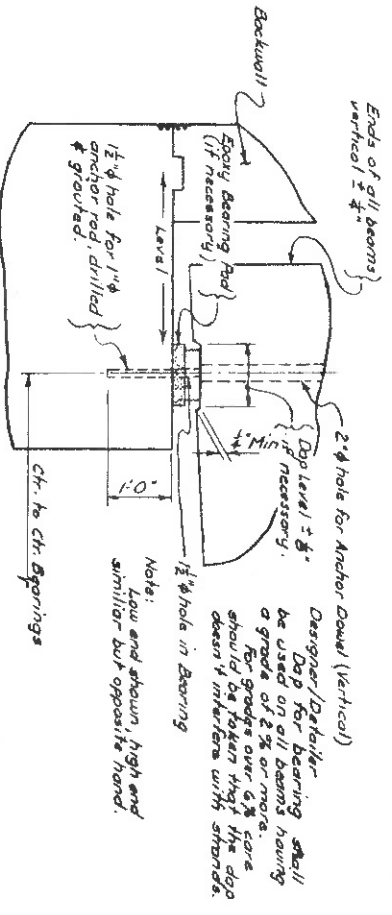 Ends of all beams
vertical ± ¼"
Backwall
Epoxy Bearing Pad
(if necessary)
Level
1½"φ hole for 1"φ
anchor rod, drilled
& grouted.
2"φ hole for Anchor Dowel (Vertical)
Dap Level ± ⅛"
if necessary.
¼" Min.
1'-0"
1½"φ hole in Bearing
Ctr. to Ctr. Bearings
Designer/Detailer
Dap for bearing shall
be used on all beams having
a grade of 2% or more.
For grades over 6% care
should be taken that the dap
doesn't interfere with strands.
Note:
Low end shown, high end
similiar but opposite hand.